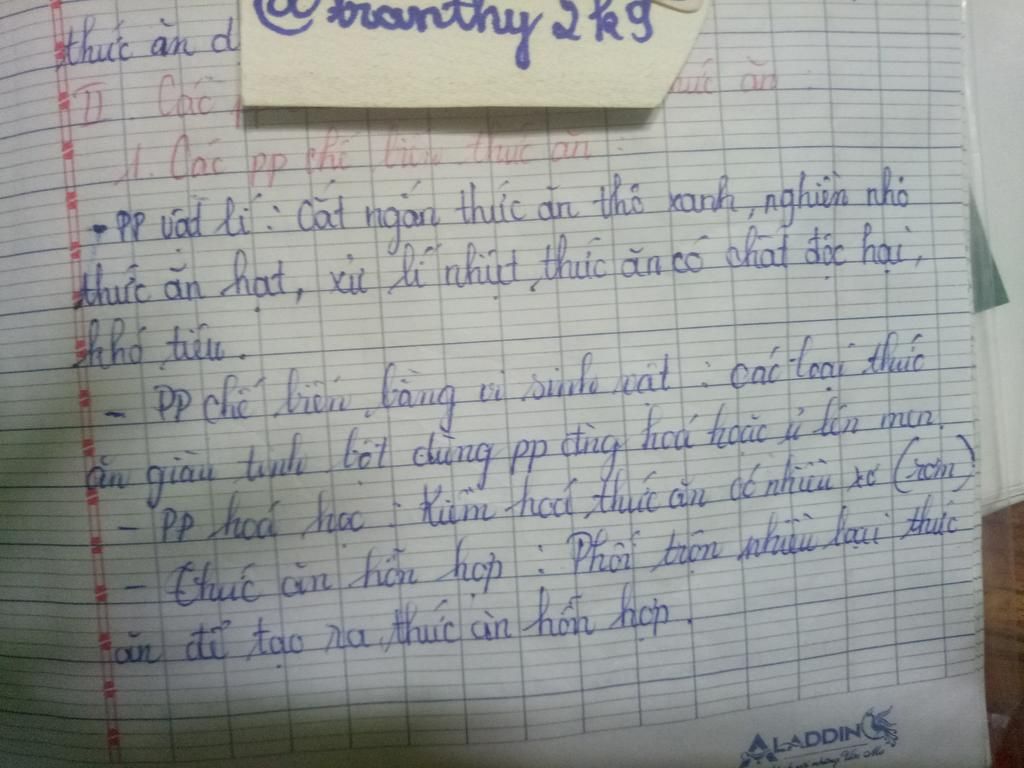 @tranthy2k9
thức ăn d
II. Các p thức ăn
1. Các pp chế biến thức ăn :
- PP vật lí : Cắt ngắn thức ăn thô xanh, nghiền nhỏ
thức ăn hạt, xử lí nhiệt thức ăn có chất độc hại,
khó tiêu.
- PP chế biến bằng vi sinh vật : các loại thức
ăn giàu tinh bột dùng pp đường hoá hoặc ủ lên men.
- PP hoá học : Kiềm hoá thức ăn có nhiều xơ (rơm)
- thức ăn hỗn hợp : Phối trộn nhiều loại thức
ăn để tạo ra thức ăn hỗn hợp.
ALADDIN